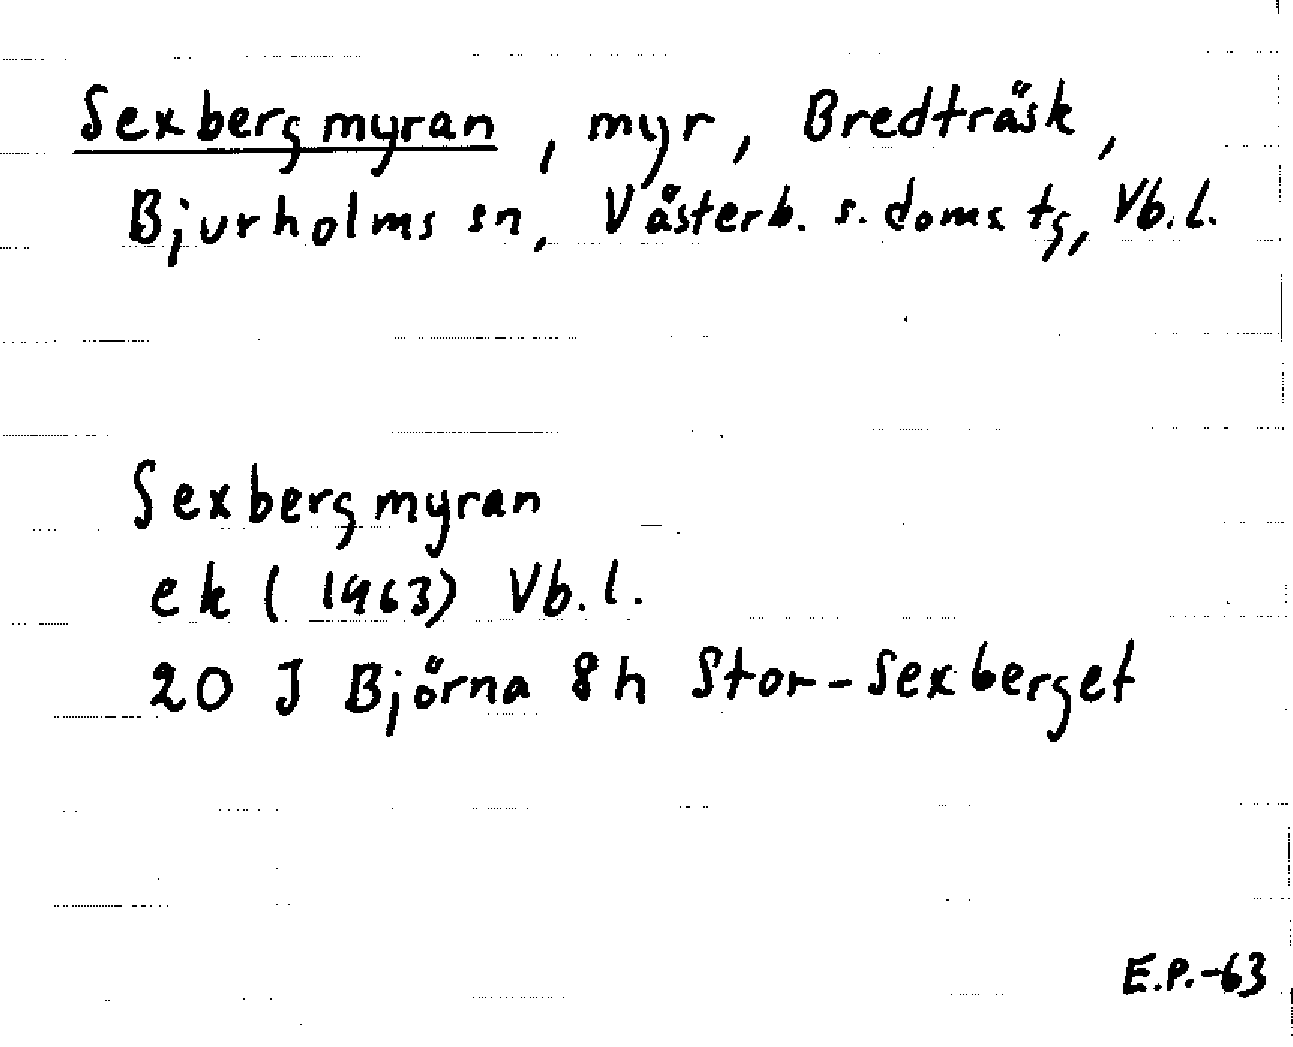 Sexbergmyran, myr, Bredträsk,
Bjurholms sn, Västerb. s. doms tg, Vb. l.
Sexbergmyran
ek (1963) Vb. l.
20 J Björna 8h Stor-Sexberget
E.P.-63